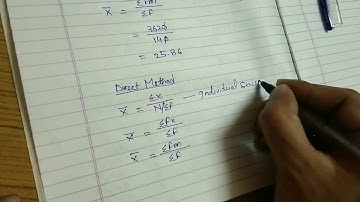 x̄ = Σfm/Σf
= 3620/140
= 25.86
Direct Method
x̄ = Σx/N/Σf — Individual Series
x̄ = Σfx/Σf
x̄ = Σfm/Σf